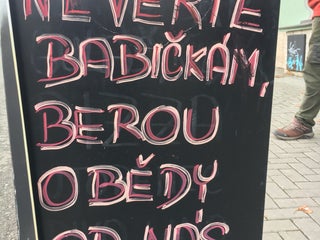 NEVĚŘTE
BABIČKÁM,
BEROU
OBĚDY
OD NÁS